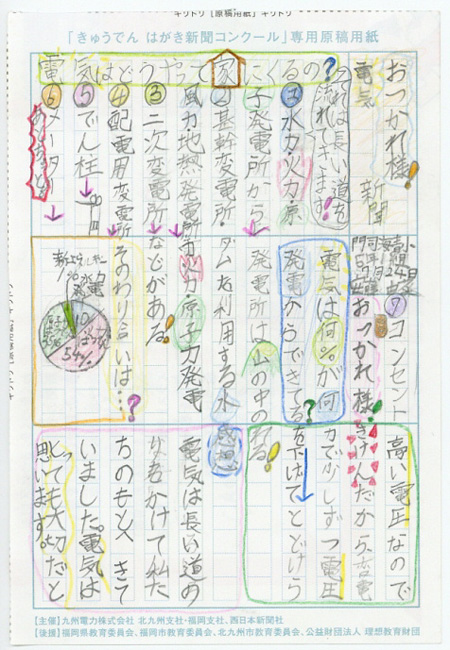 キリトリ 【原稿用紙】 キリトリ
「きゅうでん はがき新聞コンクール」専用原稿用紙
おつかれ様!
電気 新聞
電気はどうやって家にくるの?
それは長い道を
流れてきます!
①水力・火力・原
子力発電所から
風力・地熱発電所
②基幹変電所・
③二次変電所
④配電用変電所
⑤でん柱
⑥メーター
⑦コンセント
おつかれ様!
発電所は山の中の
ダムを利用する水
力・火力・原子力発電
などがある!
そのわり合いは…?
電気は何%が何
発電からできる?
水力
発電
10
54%
高い電圧なので
きけんだから、変電
所で少しずつ電圧
を下げてとどける!
感想
電気は長い道の
りをかけて私た
ちのもとへきて
いました。電気は
とっても大切だと
思います。
【主催】九州電力株式会社 北九州支社・福岡支社、西日本新聞社
【後援】福岡県教育委員会、福岡市教育委員会、北九州市教育委員会、公益財団法人 理想教育財団